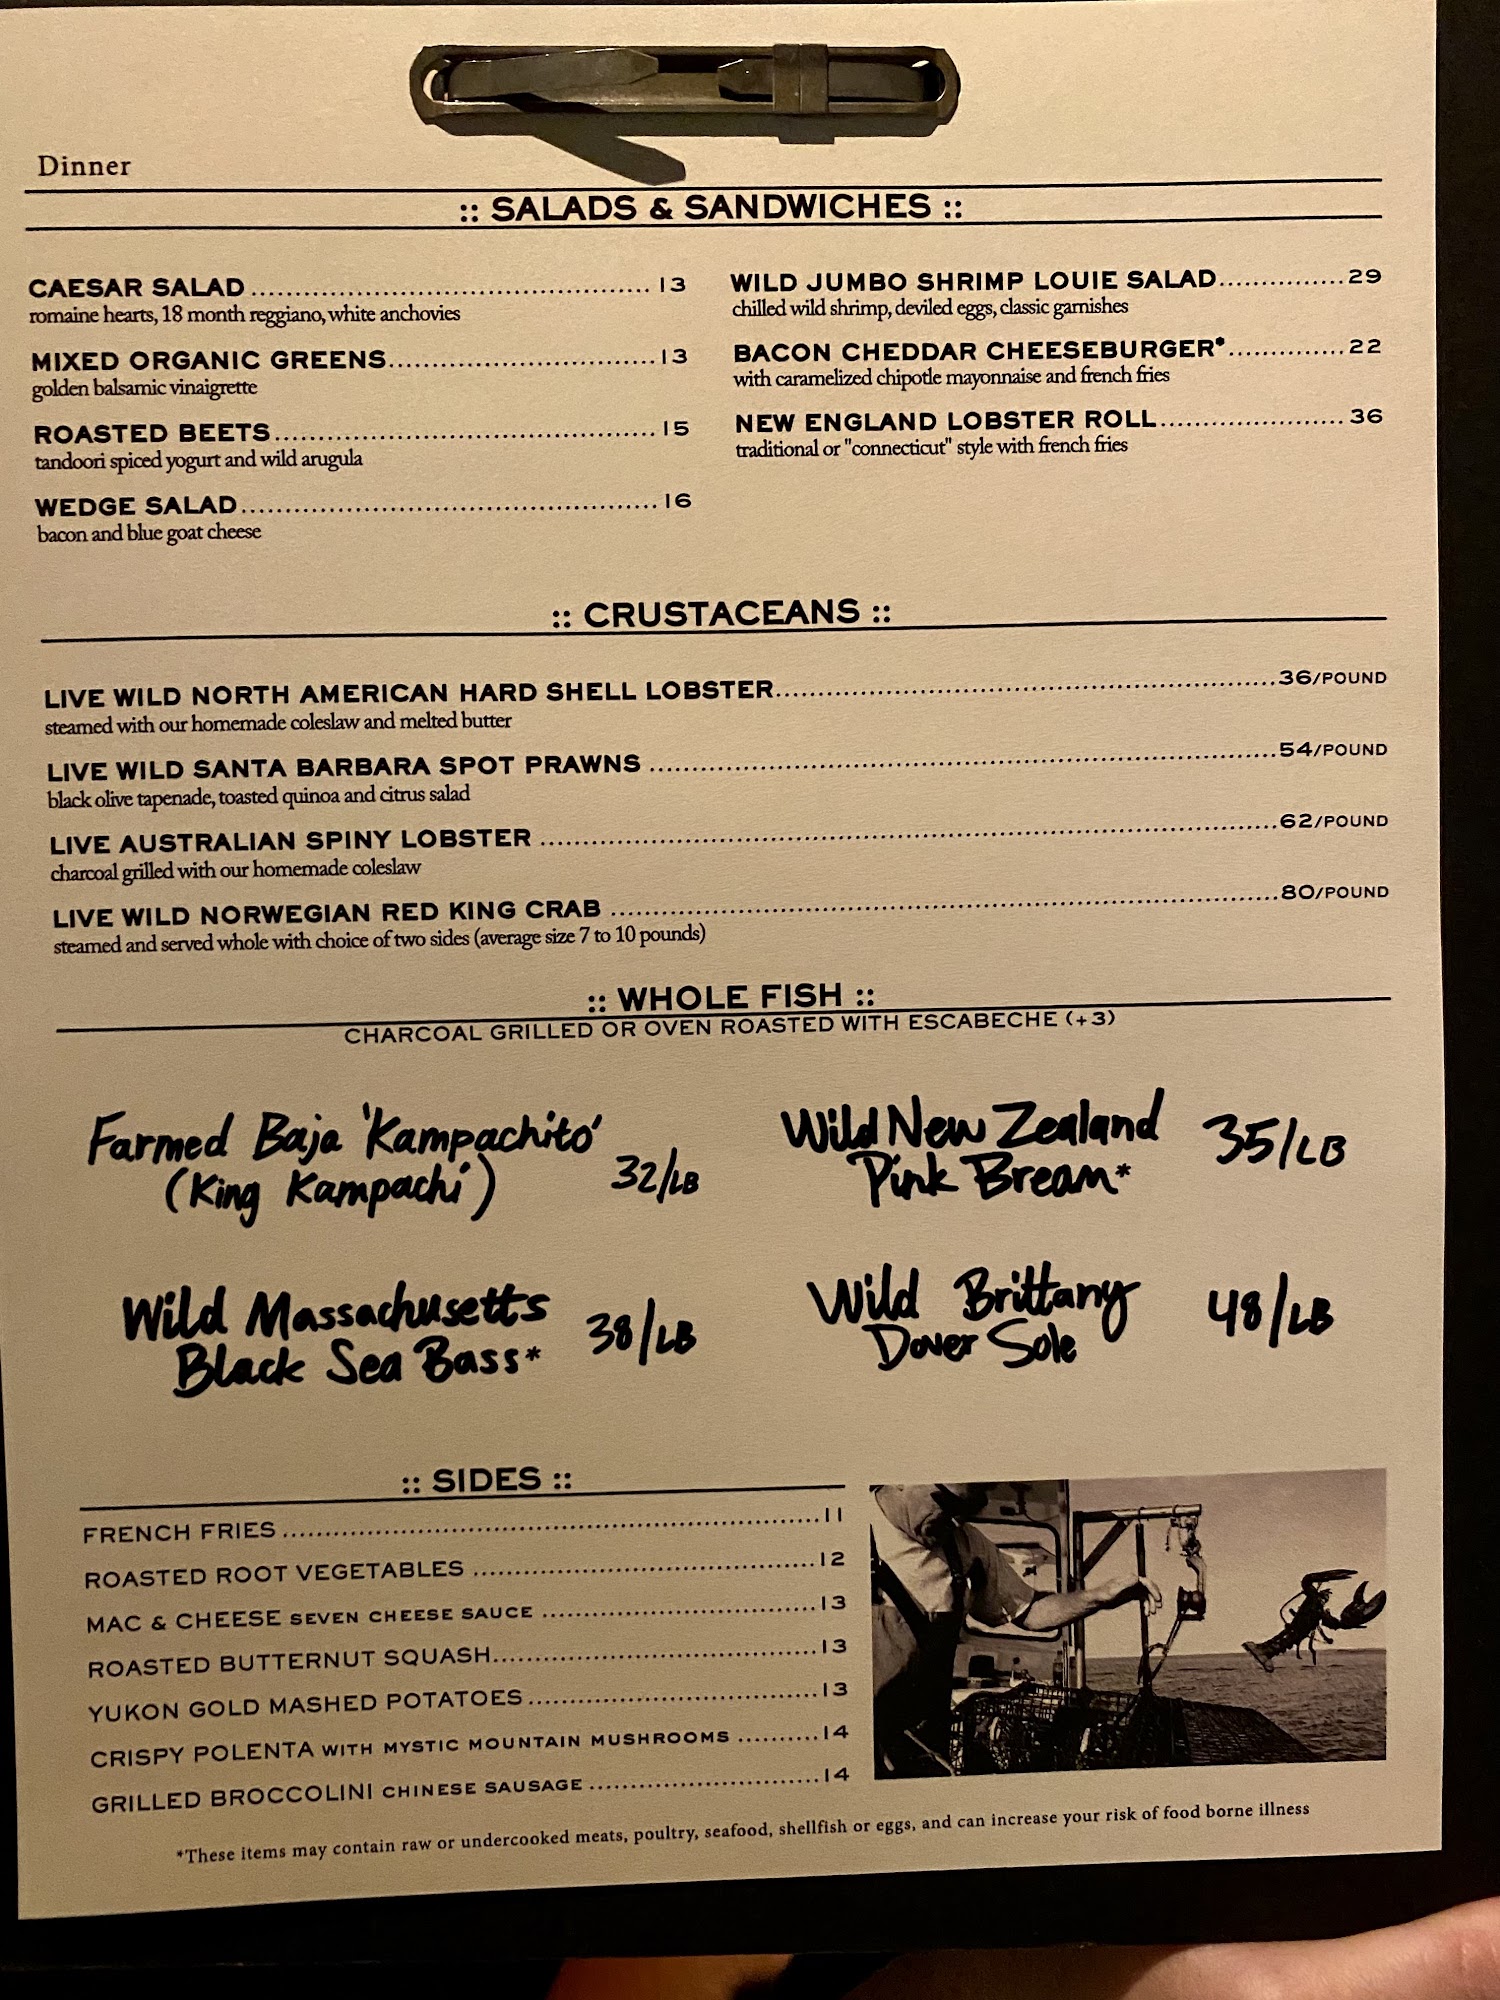 Dinner
:: SALADS & SANDWICHES ::
CAESAR SALAD 13
romaine hearts, 18 month reggiano, white anchovies
MIXED ORGANIC GREENS 13
golden balsamic vinaigrette
ROASTED BEETS 15
tandoori spiced yogurt and wild arugula
WEDGE SALAD 16
bacon and blue goat cheese
WILD JUMBO SHRIMP LOUIE SALAD 29
chilled wild shrimp, deviled eggs, classic garnishes
BACON CHEDDAR CHEESEBURGER* 22
with caramelized chipotle mayonnaise and french fries
NEW ENGLAND LOBSTER ROLL 36
traditional or "connecticut" style with french fries
:: CRUSTACEANS ::
LIVE WILD NORTH AMERICAN HARD SHELL LOBSTER 36/POUND
steamed with our homemade coleslaw and melted butter
LIVE WILD SANTA BARBARA SPOT PRAWNS 54/POUND
black olive tapenade, toasted quinoa and citrus salad
LIVE AUSTRALIAN SPINY LOBSTER 62/POUND
charcoal grilled with our homemade coleslaw
LIVE WILD NORWEGIAN RED KING CRAB 80/POUND
steamed and served whole with choice of two sides (average size 7 to 10 pounds)
:: WHOLE FISH ::
CHARCOAL GRILLED OR OVEN ROASTED WITH ESCABECHE (+3)
Farmed Baja 'Kampachito'
(King Kampachi) 32/LB
Wild New Zealand
Pink Bream* 35/LB
Wild Massachusetts
Black Sea Bass* 38/LB
Wild Brittany
Dover Sole 48/LB
:: SIDES ::
FRENCH FRIES 11
ROASTED ROOT VEGETABLES 12
MAC & CHEESE SEVEN CHEESE SAUCE 13
ROASTED BUTTERNUT SQUASH 13
YUKON GOLD MASHED POTATOES 13
CRISPY POLENTA WITH MYSTIC MOUNTAIN MUSHROOMS 14
GRILLED BROCCOLINI CHINESE SAUSAGE 14
*These items may contain raw or undercooked meats, poultry, seafood, shellfish or eggs, and can increase your risk of food borne illness